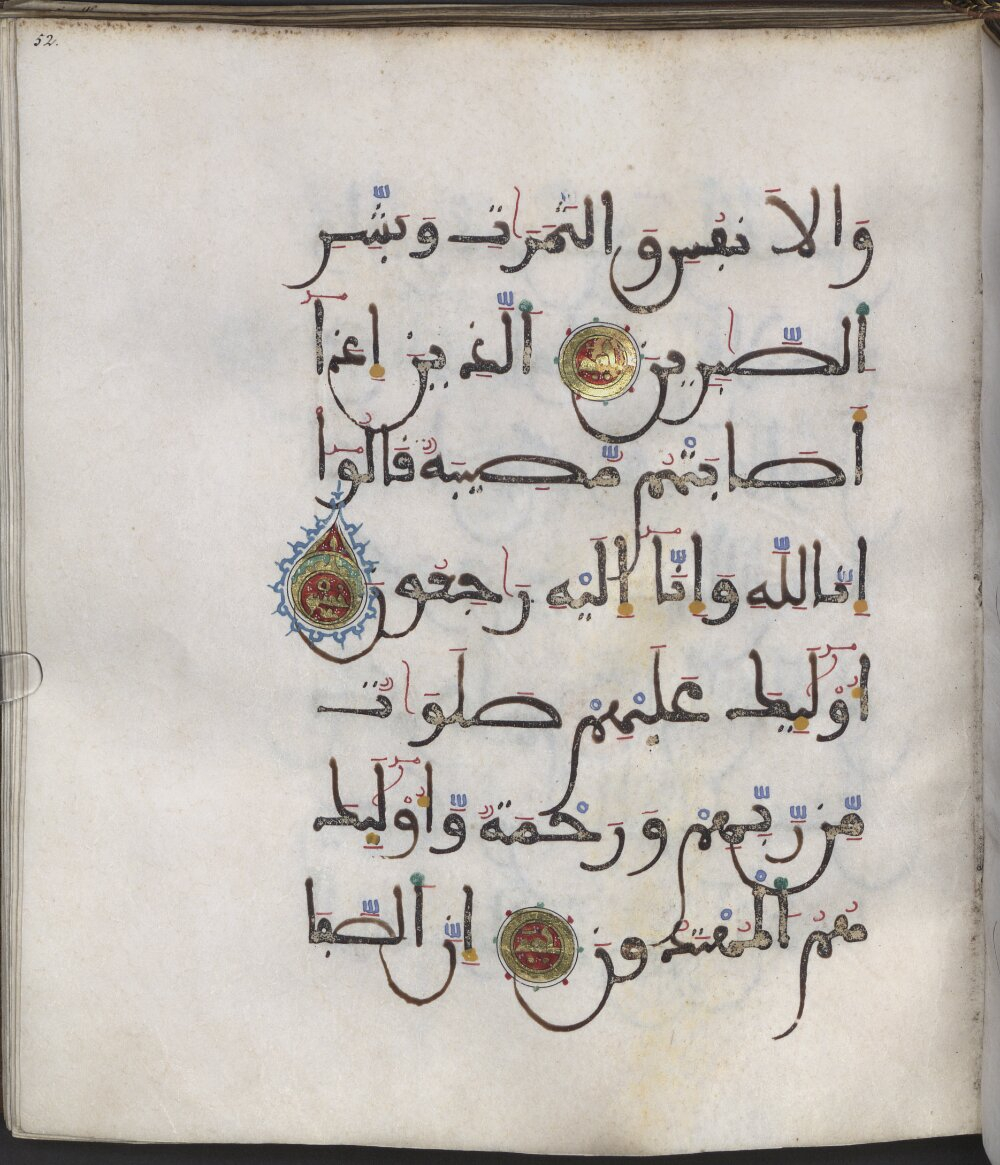 52.
وَالَانفُسِ وَالثَّمَرَٰتِ وَبَشِّرِ
اِ۬لصَّٰبِرِينَ اَ۬لذِينَ إِذَآ
أَصَٰبَتْهُم مُّصِيبَةٞ قَالُوٓاْ
إِنَّا لِلهِ وَإِنَّآ إِلَيْهِ رَٰجِعُونَ
أُوْلَٰٓئِكَ عَلَيْهِمْ صَلَوَٰتٞ
مِّن رَّبِّهِمْ وَرَحْمَةٞ وَّأُوْلَٰٓئِكَ
هُمُ اُ۬لْمُهْتَدُونَ إِنَّ اَ۬لصَّفَا